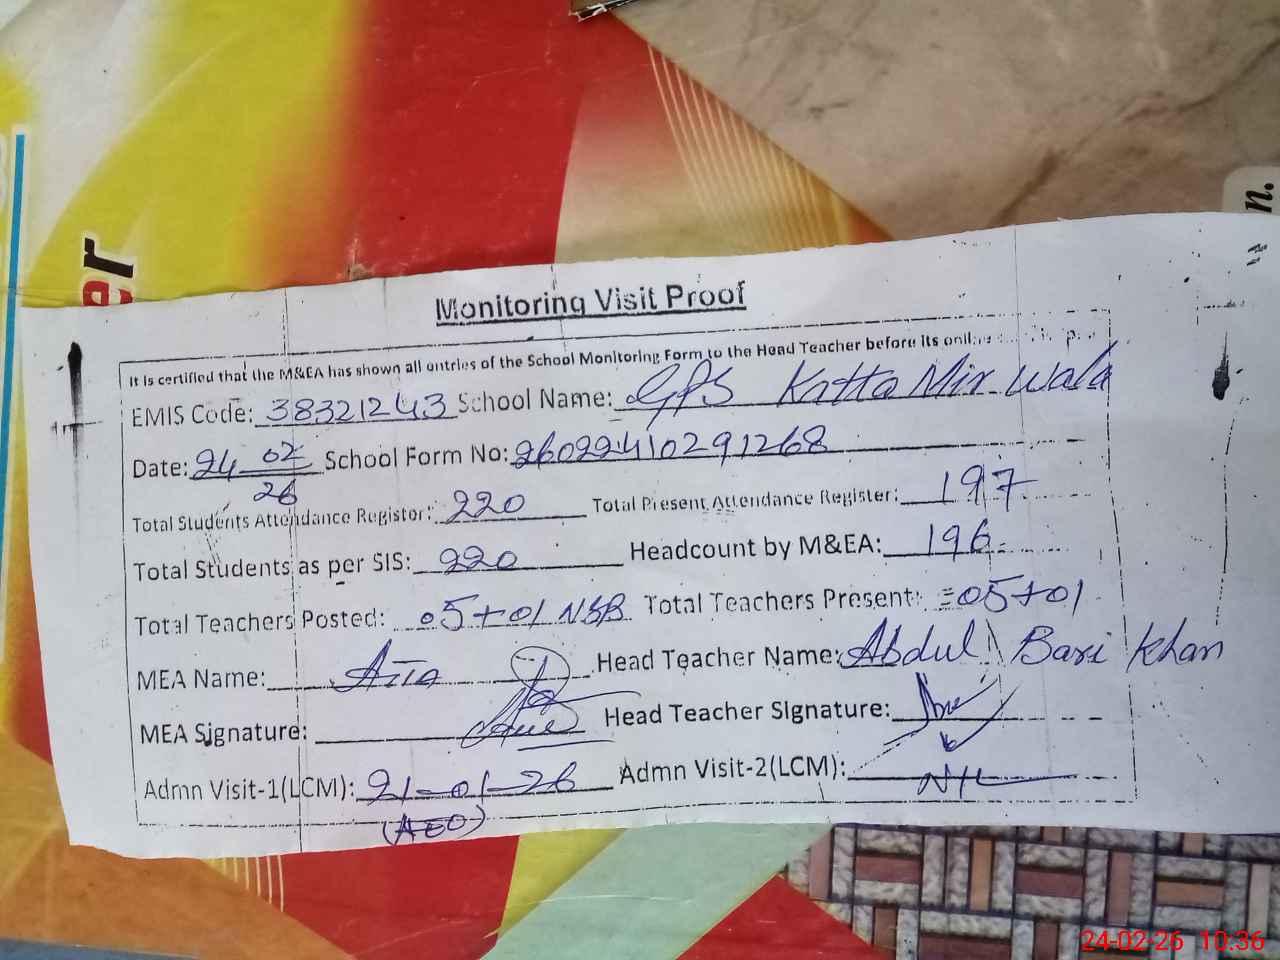 er
n.
Monitoring Visit Proof
It is certified that the M&EA has shown all entries of the School Monitoring Form to the Head Teacher before its
EMIS Code: 38321243 School Name: GPS Katta Mir Wala
Date: 24-02/26 School Form No: 26022410291268
Total Students Attendance Register: 220 Total Present Attendance Register: 197
Total Students as per SIS: 220 Headcount by M&EA: 196
Total Teachers Posted: 05+01 NSB Total Teachers Present: =05+01
MEA Name: Head Teacher Name: Abdul Bari Khan
MEA Signature: Head Teacher Signature:
Admn Visit-1(LCM): 21-01-26 Admn Visit-2(LCM): NIL
(AEO)
24-02-26 10:36